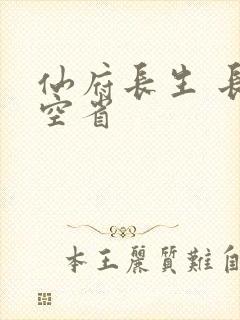 仙府長生 長
空省
本王麗質難自